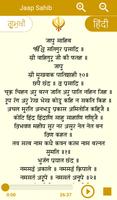 Jaap Sahib
ਗੁਰਮੁਖੀ
हिंदी
जापु साहिब
ੴ सतिगुर प्रसादि ॥
स्री वाहिगुरू जी की फतह ॥
जापु ॥
स्री मुखवाक पातिसाही १० ॥
छपै छंद ॥ त्वप्रसादि ॥
चक्र चिहन अरु बरन जाति अरु पाति नहिन जिह ॥
रूप रंग अरु रेख भेख कोऊ कहि न सकत किह ॥
अचल मूरति अनभउ प्रकास अमितोज कहिजै ॥
कोटि इंद्र इंद्राण साहु साहाणि गणिजै ॥
त्रिभवण महीप सुर नर असुर नेत नेत बन त्रिण कहत ॥
तव सरब नाम कथै कवन करम नाम बरनत सुमति ॥१॥
भुजंग प्रयात छंद ॥
नमसत्वं अकाले ॥
नमसत्वं क्रिपाले ॥
0:00
26:37